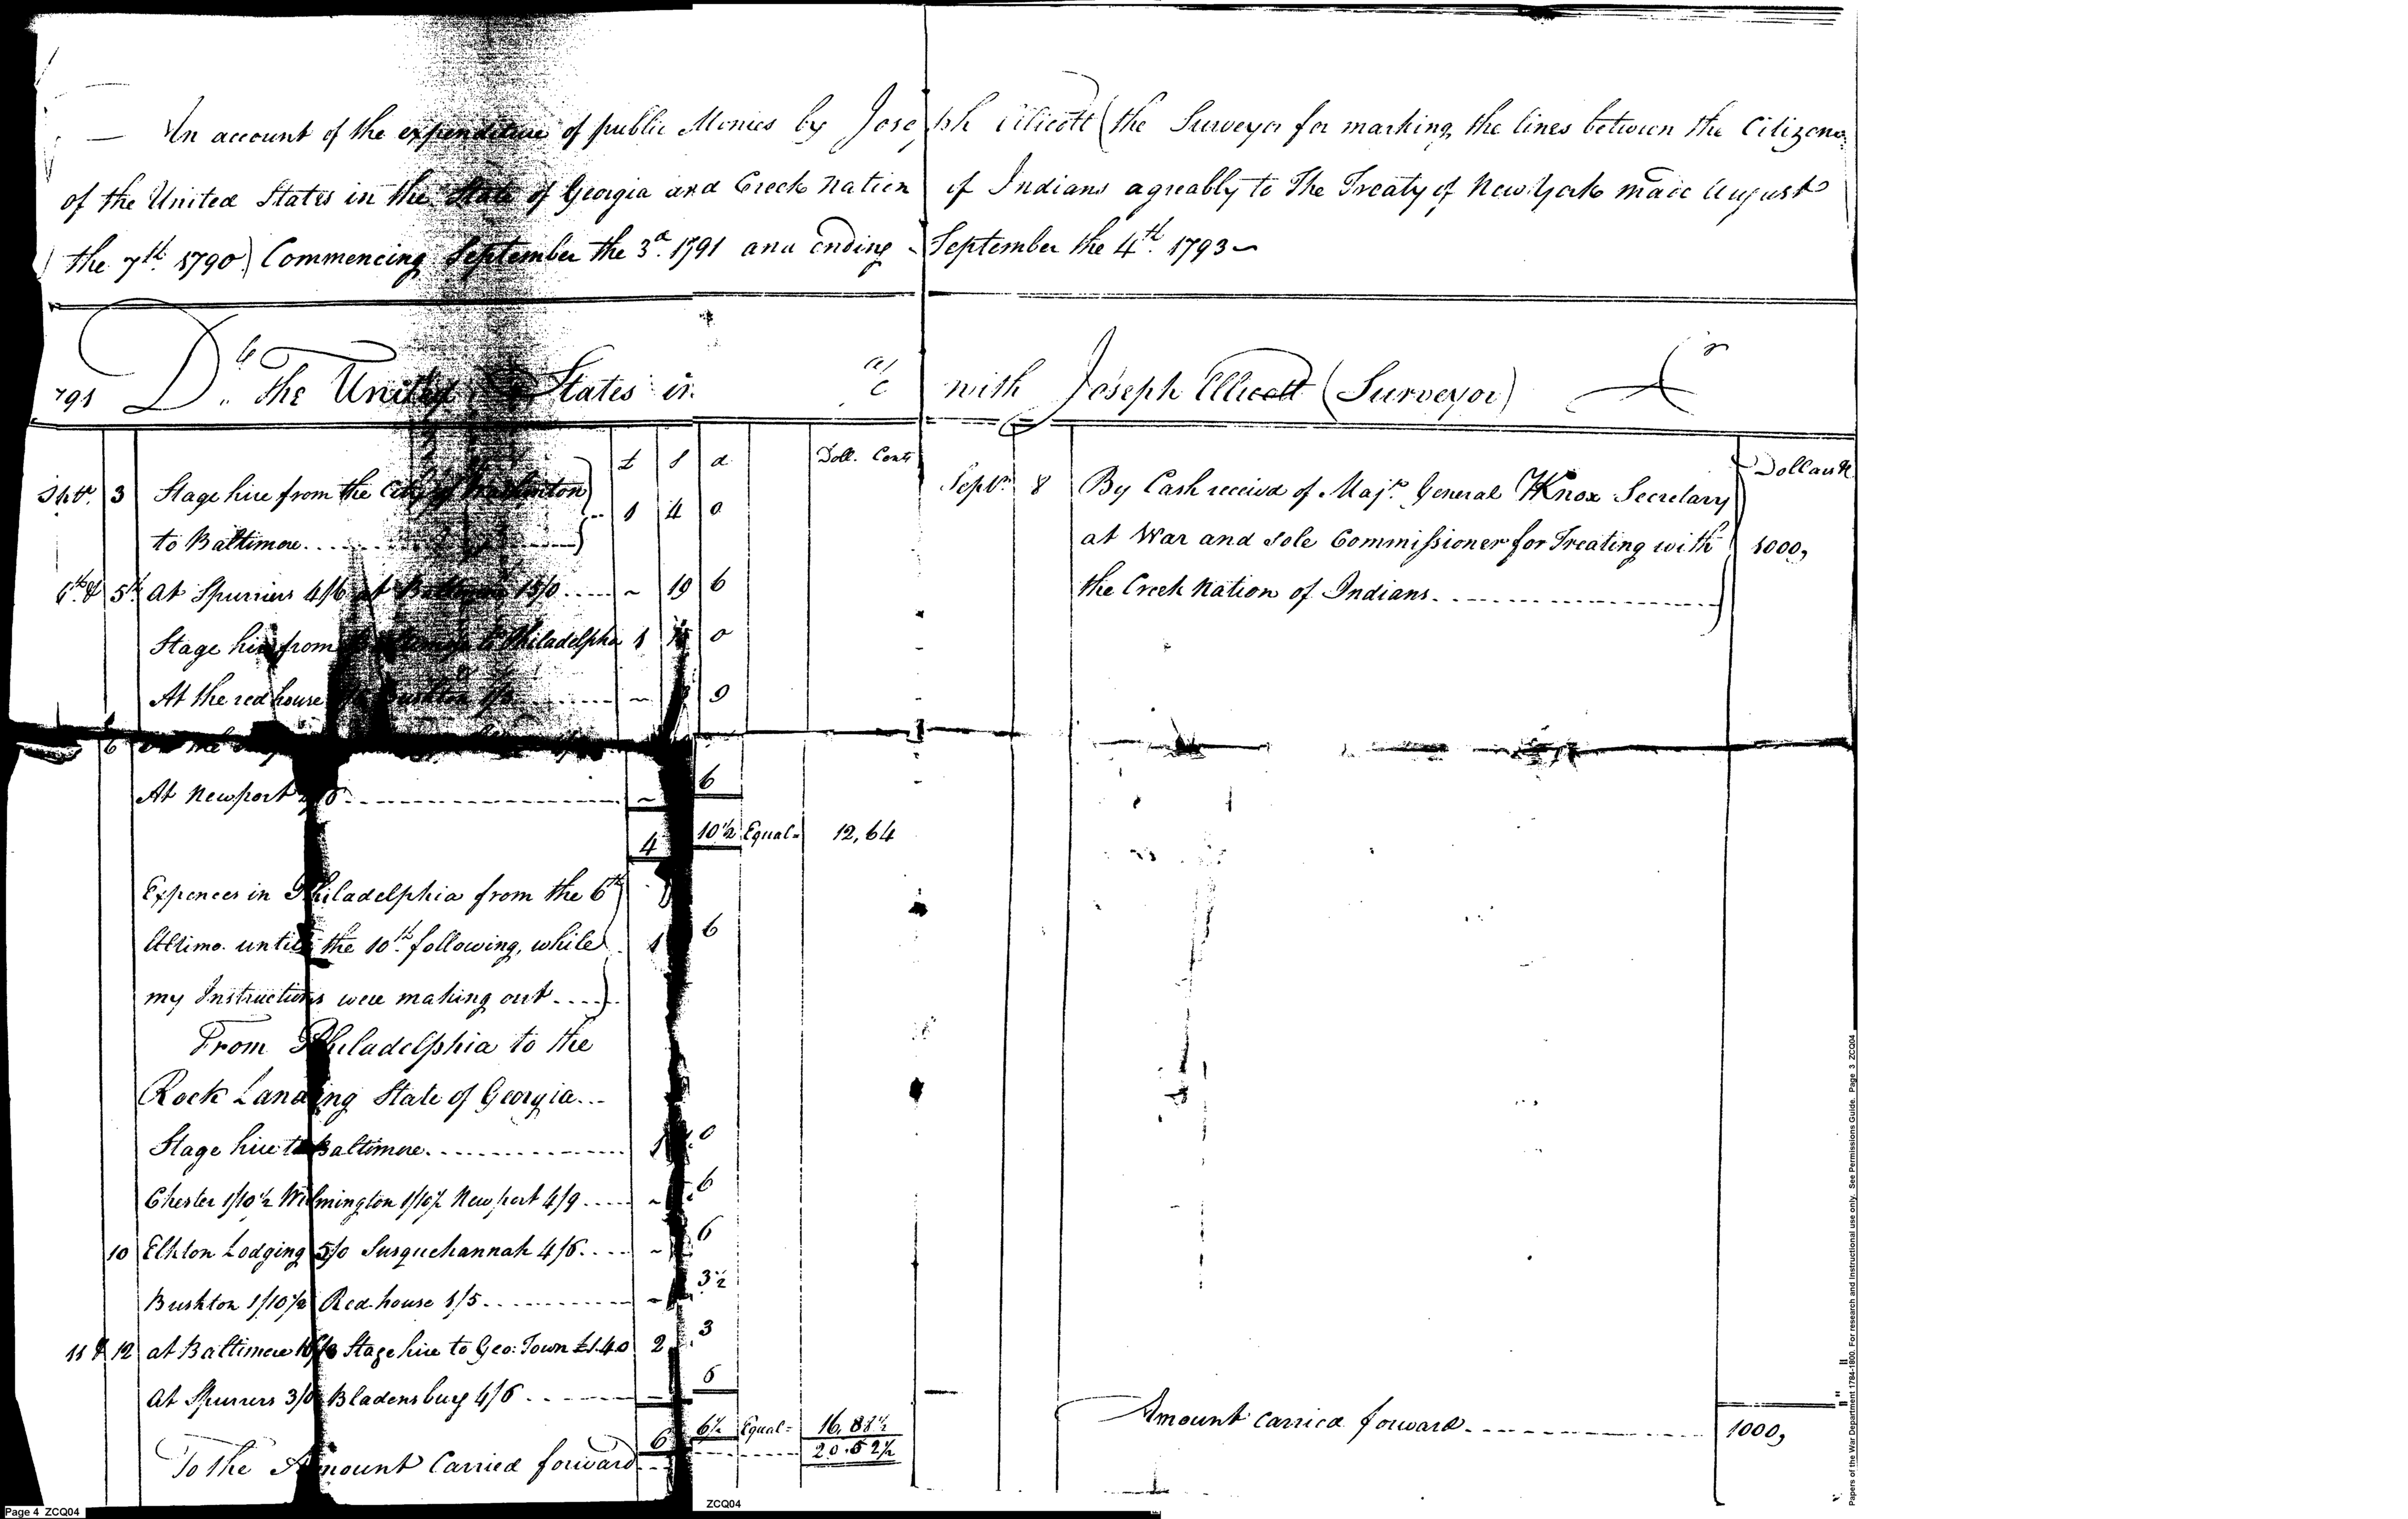 An account of the expenditure of public Monies by Joseph Ellicott (the Surveyor for marking the lines between the Citizens
of the United States in the State of Georgia and Creek Nation of Indians agreably to The Treaty of New York made August
the 7th. 1790) Commencing September the 3d. 1791 and ending September the 4th. 1793
791 Dr. The United States in a/c with Joseph Ellicott (Surveyor) Cr
£ S d Doll. Cents
Septr. 3 Stage hire from the City of Washinton
to Baltimore 1 4 0
5th. At Spurriers 4/6 at Baltimore 15/0 ~ 19 6
Stage hire from to Philadelpha 1 0
At the red house Bushton ~ 9
6
At Newport ~ 6
4 10½ Equal= 12,64
Expences in Philadelphia from the 6th
Ultimo. until the 10th. following, while 1 6
my Instructions were making out
From Philadelphia to the
Rock Landing State of Georgia
Stage hire to Baltimore 1 0
Chester 1/10½ Wilmington 1/10½ Newport 4/9 ~ 6
10 Elkton Lodging 5/0 Susquehannah 4/6 ~ 6
Bushton 1/10½ Red-house 1/5 ~ 3½
11 & 12 at Baltimore Stage hire to Geo: Town £1.4.0 2 3
At Spurrers 3/0 Bladensburg 4/6 6
6 6½ Equal= 16,
To the Amount Carried forward
Septr. 8 By Cash receivd of Majr. General HKnox Secretary
at War and sole Commissioner for Treating with
the Creek Nation of Indians
Dollars
1000,
Amount carried forward 1000,
Page 4 ZCQ04
ZCQ04
Papers of the War Department 1784-1800. For research and instructional use only. See Permissions Guide. Page 3 ZCQ04